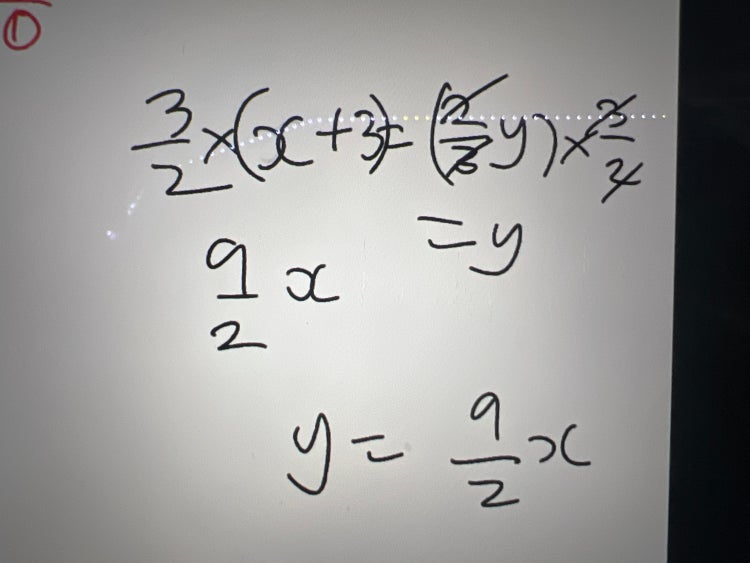 ①
3/2 × (x + 3) = (2/3 y) × 3/2
9/2 x = y
y = 9/2 x